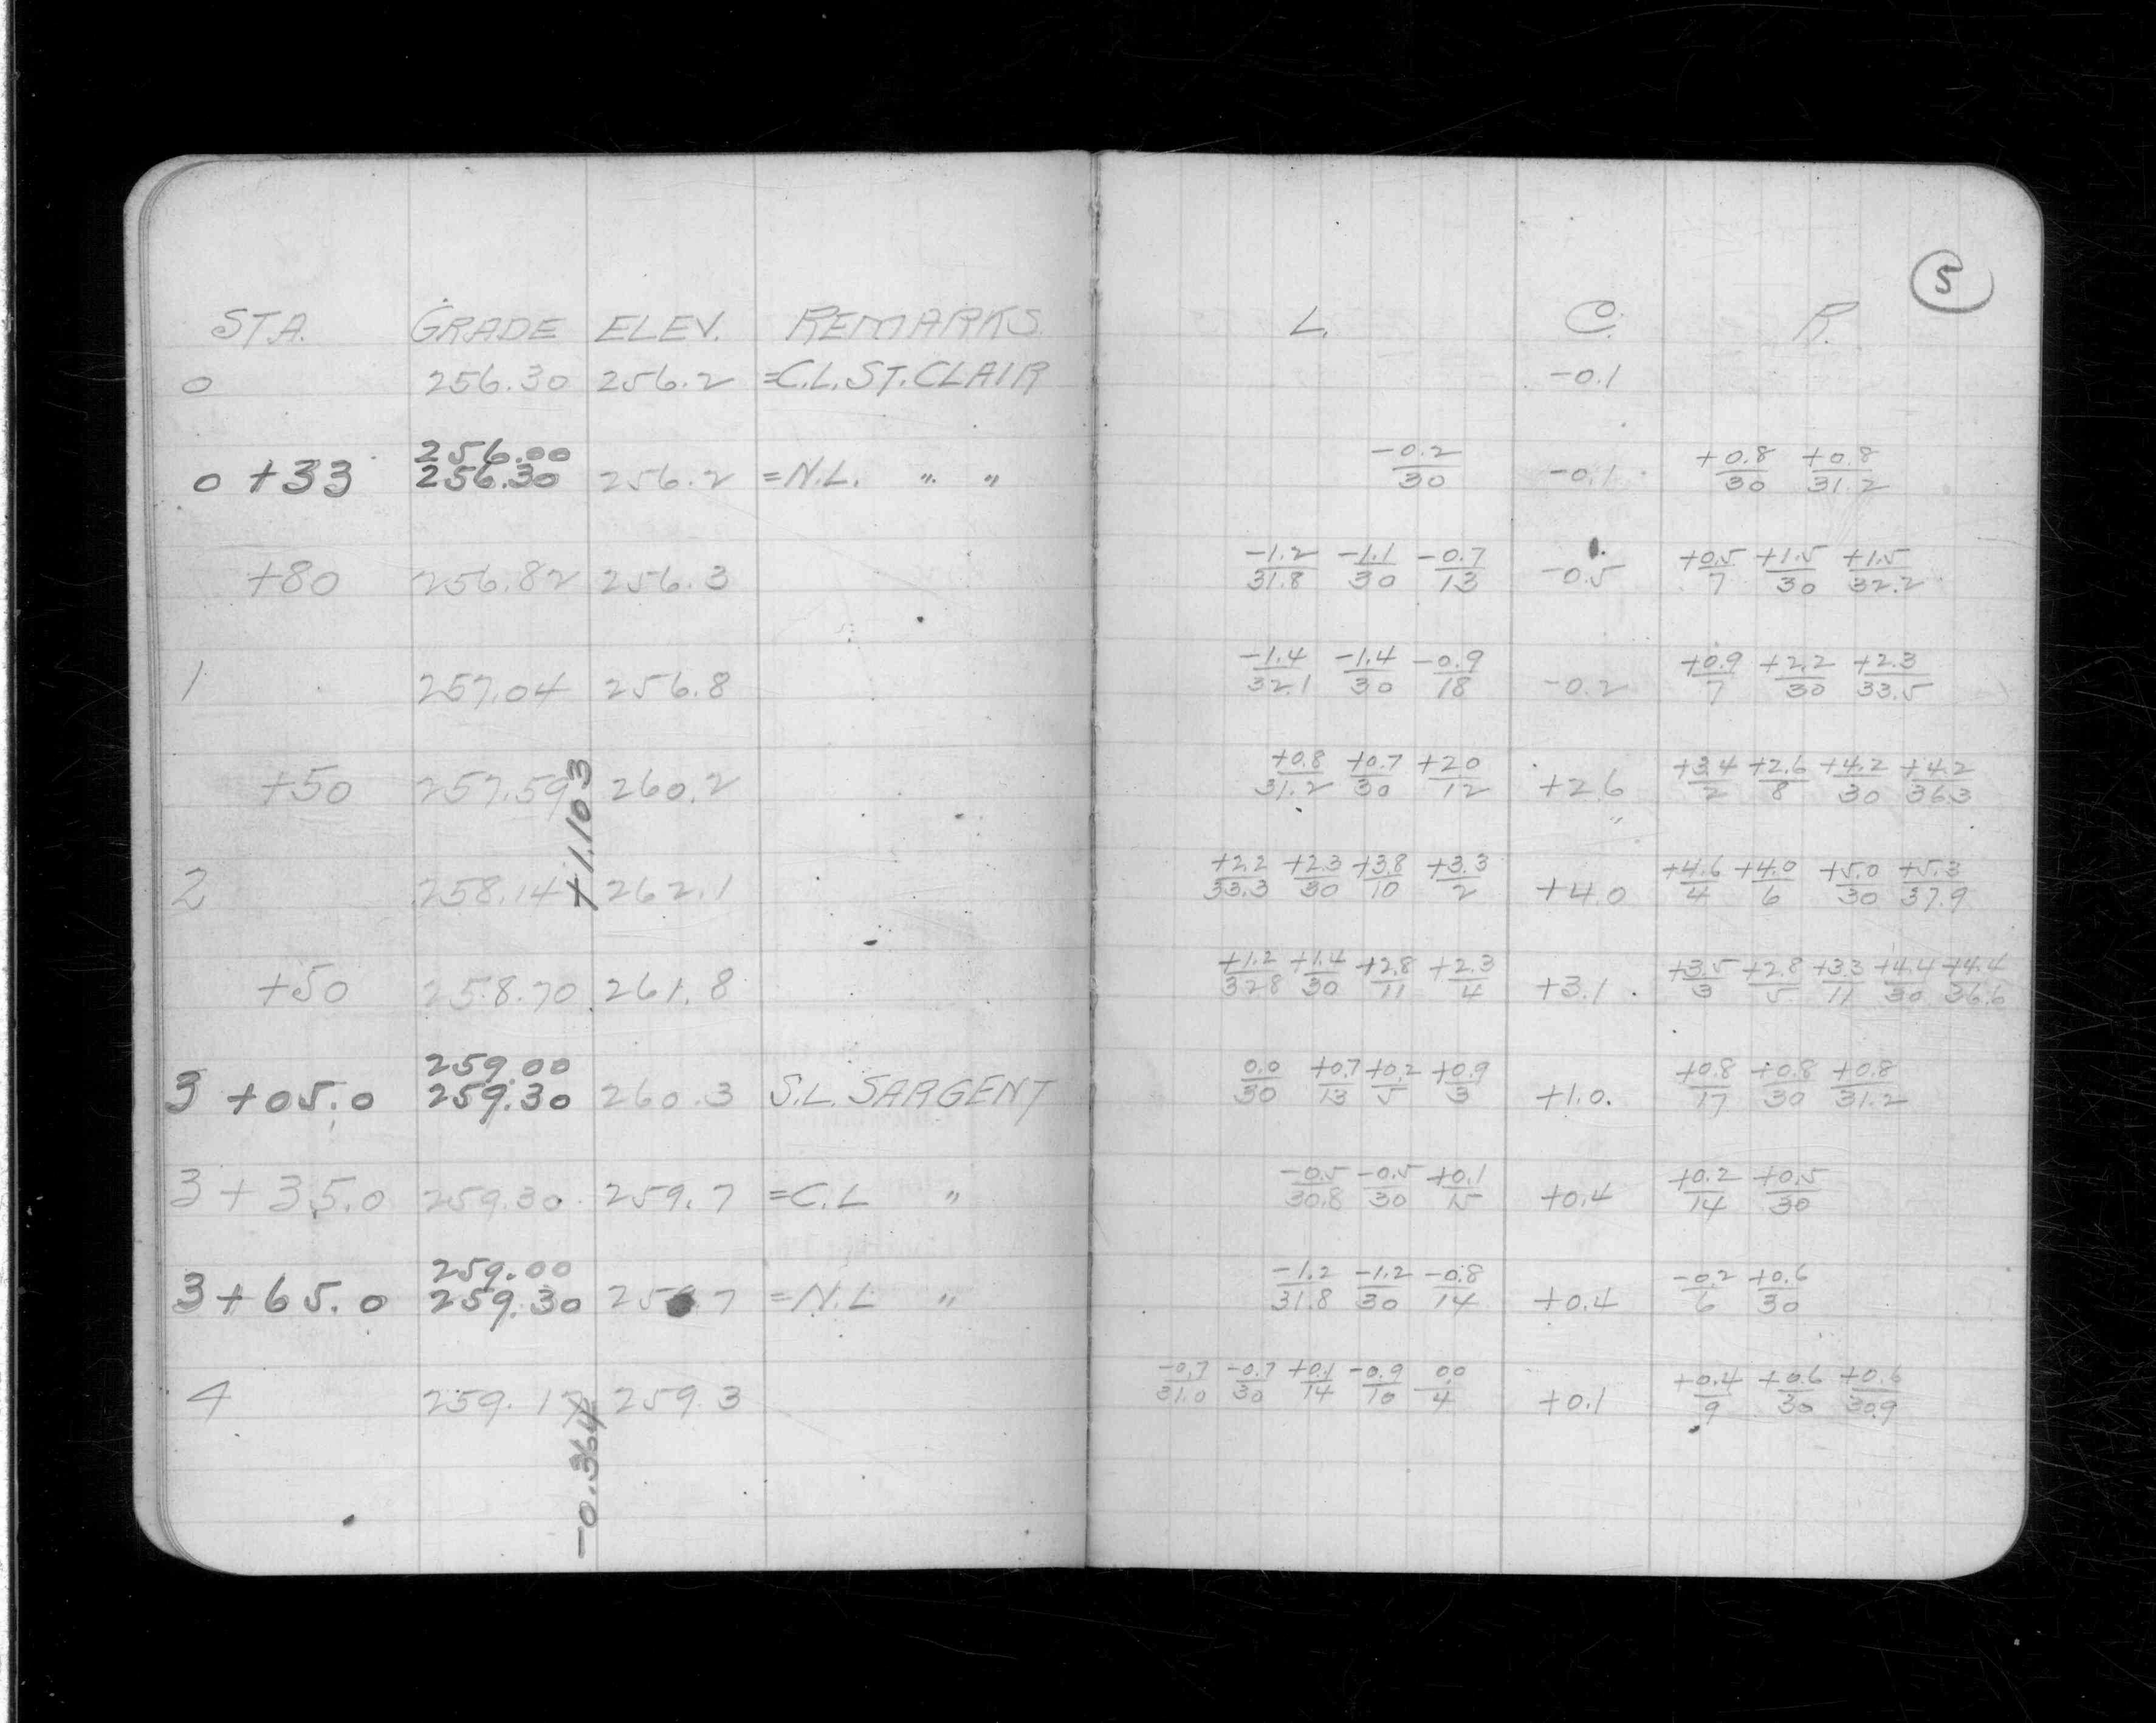 5
STA. GRADE ELEV. REMARKS. L. C. R.
0 256.30 256.2 =C.L. ST. CLAIR -0.1
256.00
0+33 256.30 256.2 =N.L. " " -0.2/30 -0.1 +0.8/30 +0.8/31.2
+80 256.82 256.3 -1.2/31.8 -1.1/30 -0.7/13 -0.5 +0.5/7 +1.5/30 +1.5/32.2
1 257.04 256.8 -1.4/32.1 -1.4/30 -0.9/18 -0.2 +0.9/7 +2.2/30 +2.3/33.5
+50 257.59 260.2 +0.8/31.2 +0.7/30 +2.0/12 +2.6 +3.4/2 +2.6/8 +4.2/30 +4.2/36.3
+1.103
2 258.14 262.1 +2.2/33.3 +2.3/30 +3.8/10 +3.3/2 +4.0 +4.6/4 +4.0/6 +5.0/30 +5.3/37.9
+50 258.70 261.8 +1.2/32.8 +1.4/30 +2.8/11 +2.3/4 +3.1 +3.5/3 +2.8/5 +3.3/11 +4.4/30 +4.4/36.6
259.00
3+05.0 259.30 260.3 S.L. SARGENT 0.0/30 +0.7/13 +0.2/5 +0.9/3 +1.0. +0.8/17 +0.8/30 +0.8/31.2
3+35.0 259.30 259.7 =C.L " -0.5/30.8 -0.5/30 +0.1/15 +0.4 +0.2/14 +0.5/30
259.00
3+65.0 259.30 =N.L " -1.2/31.8 -1.2/30 -0.8/14 +0.4 -0.2/6 +0.6/30
4 259.17 259.3 -0.7/31.0 -0.7/30 +0.1/14 -0.9/10 0.0/4 +0.1 +0.4/9 +0.6/30 +0.6/30.9
-0.364